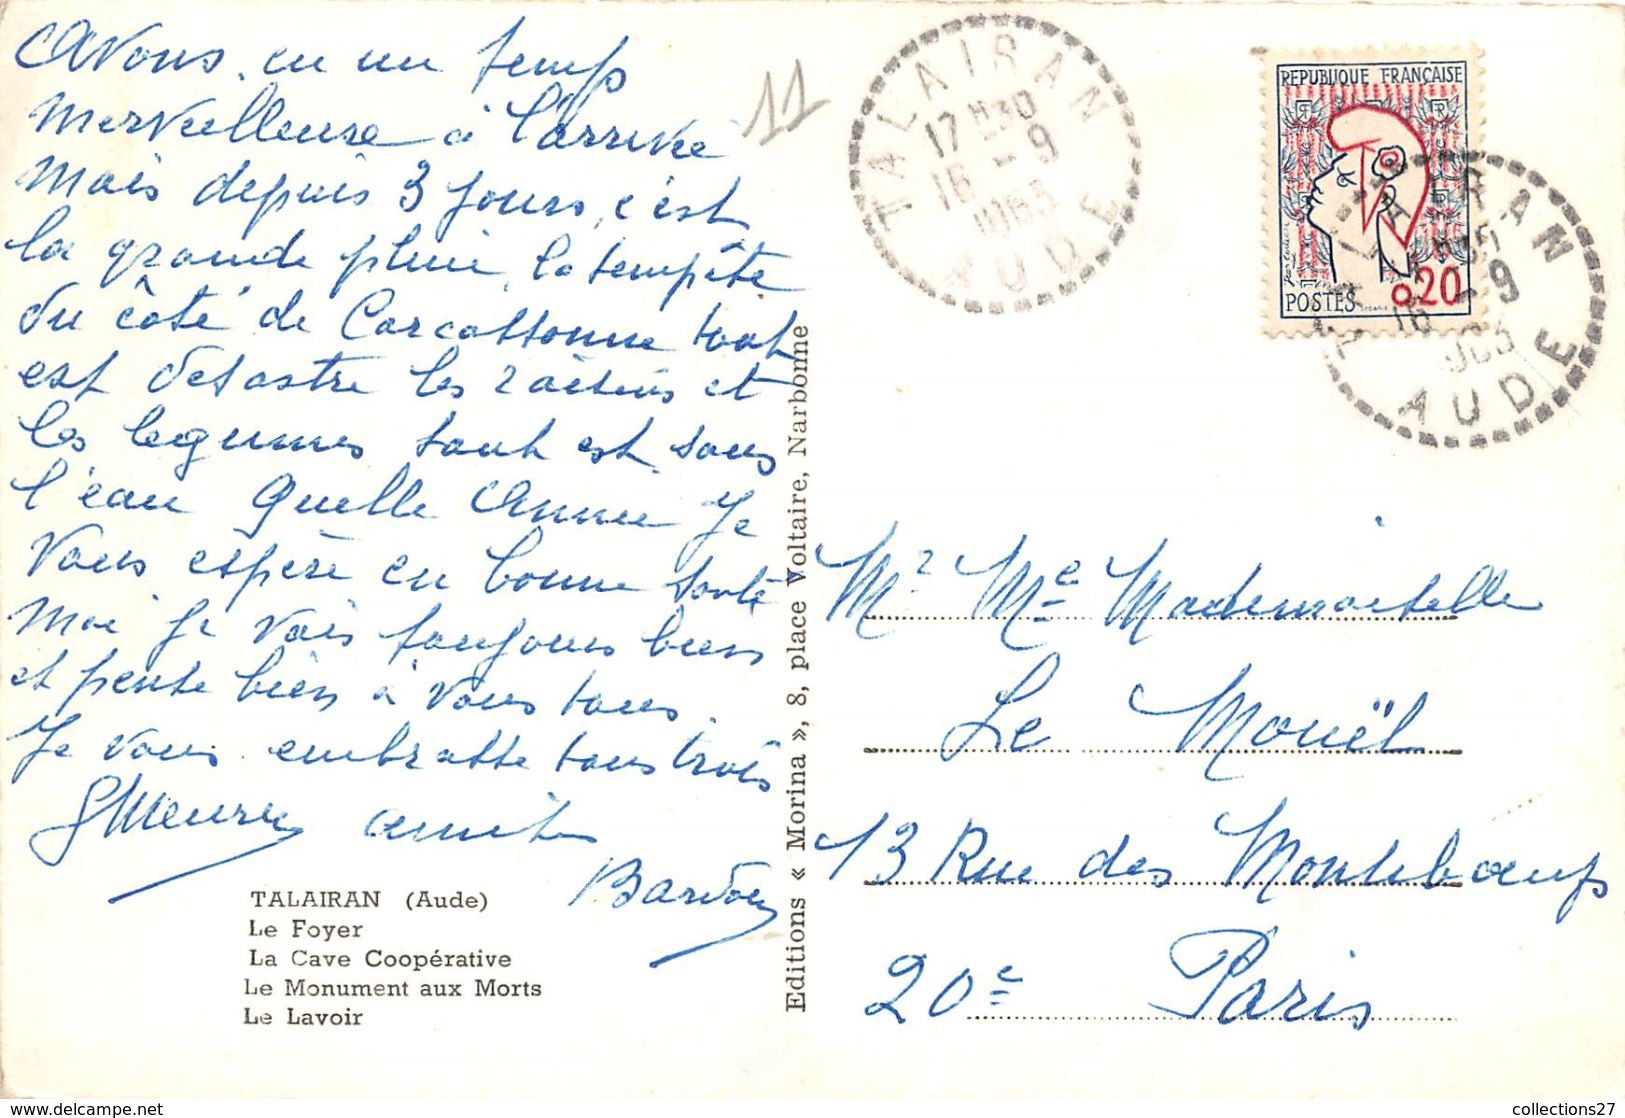 Avons eu un temps
merveilleuse à l'arrivée
Mais depuis 3 jours, c'est
la grande pluie, la tempête
du côté de Carcassonne tout
est désastre les raisins et
les legumes tout est sous
l'eau Quelle Année Je
vous espère en bonne santé
Moi je vais toujours bien
et pense bien à vous tous.
Je vous embrasse tous trois
amitiés
TALAIRAN (Aude)
Le Foyer
La Cave Coopérative
Le Monument aux Morts
Le Lavoir
Editions « Morina », 8, place Voltaire, Narbonne
11
TALAIRAN
17 H30
16 - 9
1963
AUDE
REPUBLIQUE FRANÇAISE
POSTES 0,20
TALAIRAN
16 - 9
AUDE
Mr Me Mademoiselle
Le Mouël
13 Rue des Montiboeufs
20e Paris
collections27